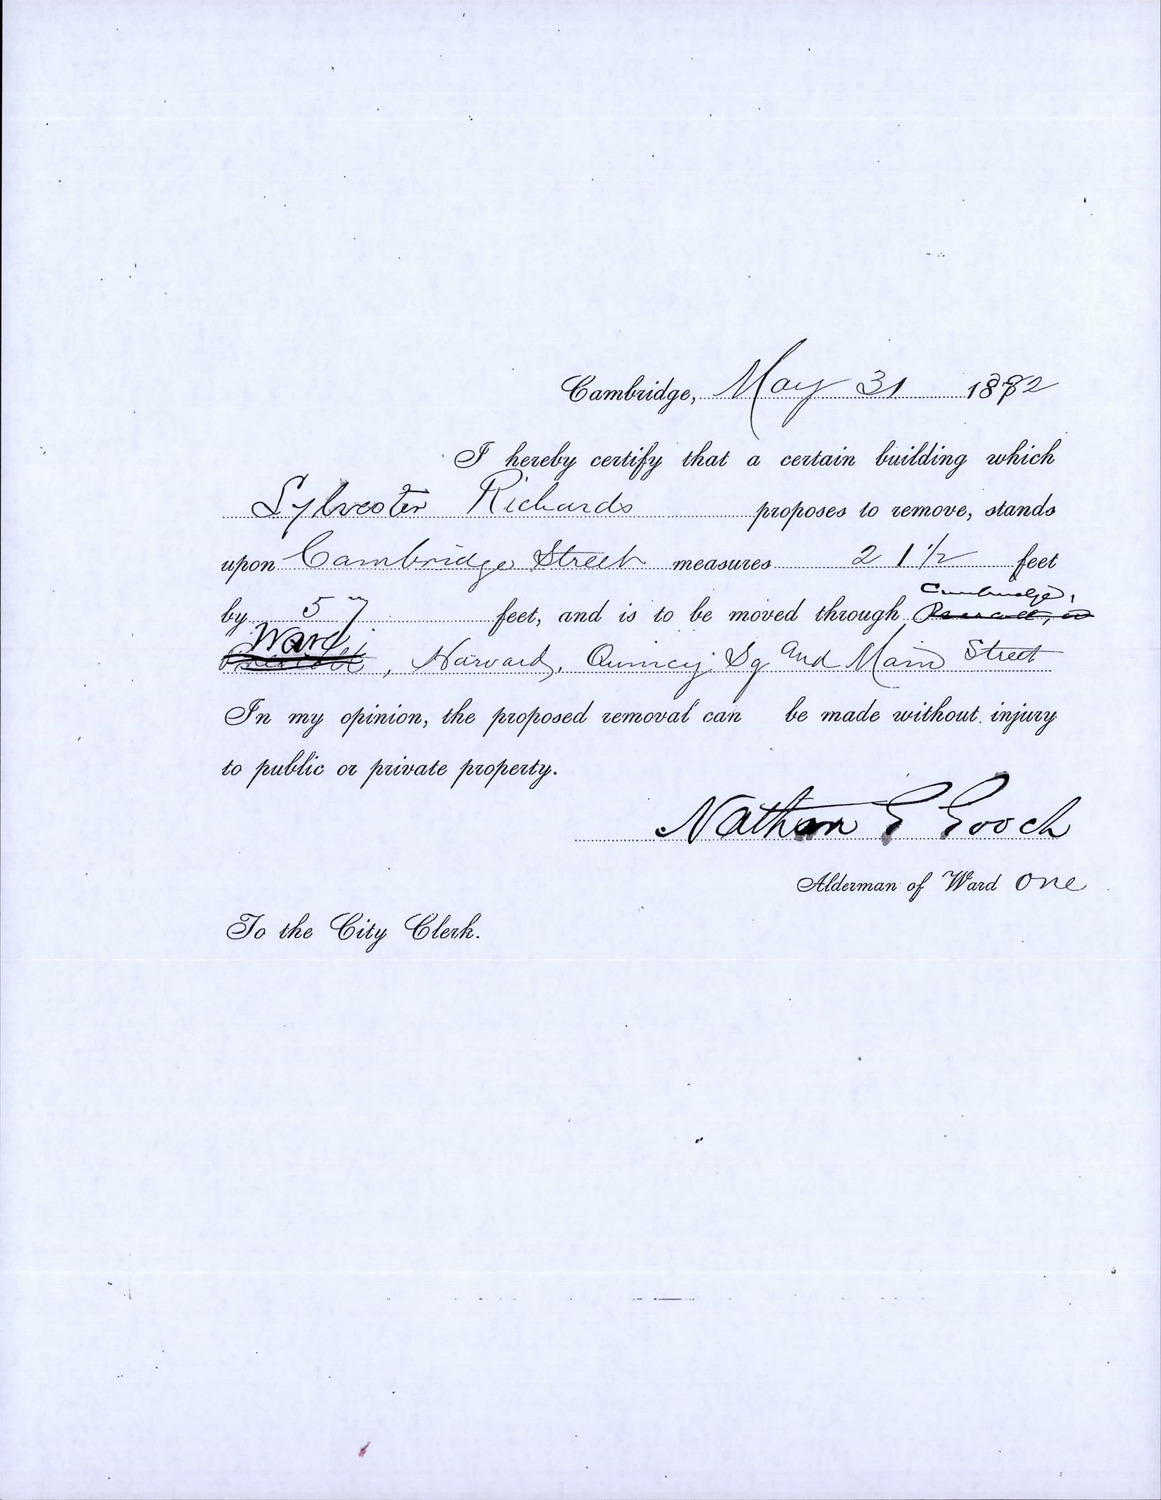 Cambridge, May 31 1892
I hereby certify that a certain building which
Sylvester Richards proposes to remove, stands
upon Cambridge Street measures 21 1/2 feet
by 57 feet, and is to be moved through Cambridge,
Ward, Harvard, Quincy Sq and Main Street
In my opinion, the proposed removal can be made without injury
to public or private property.
Nathan G Gooch
Alderman of Ward One
To the City Clerk.